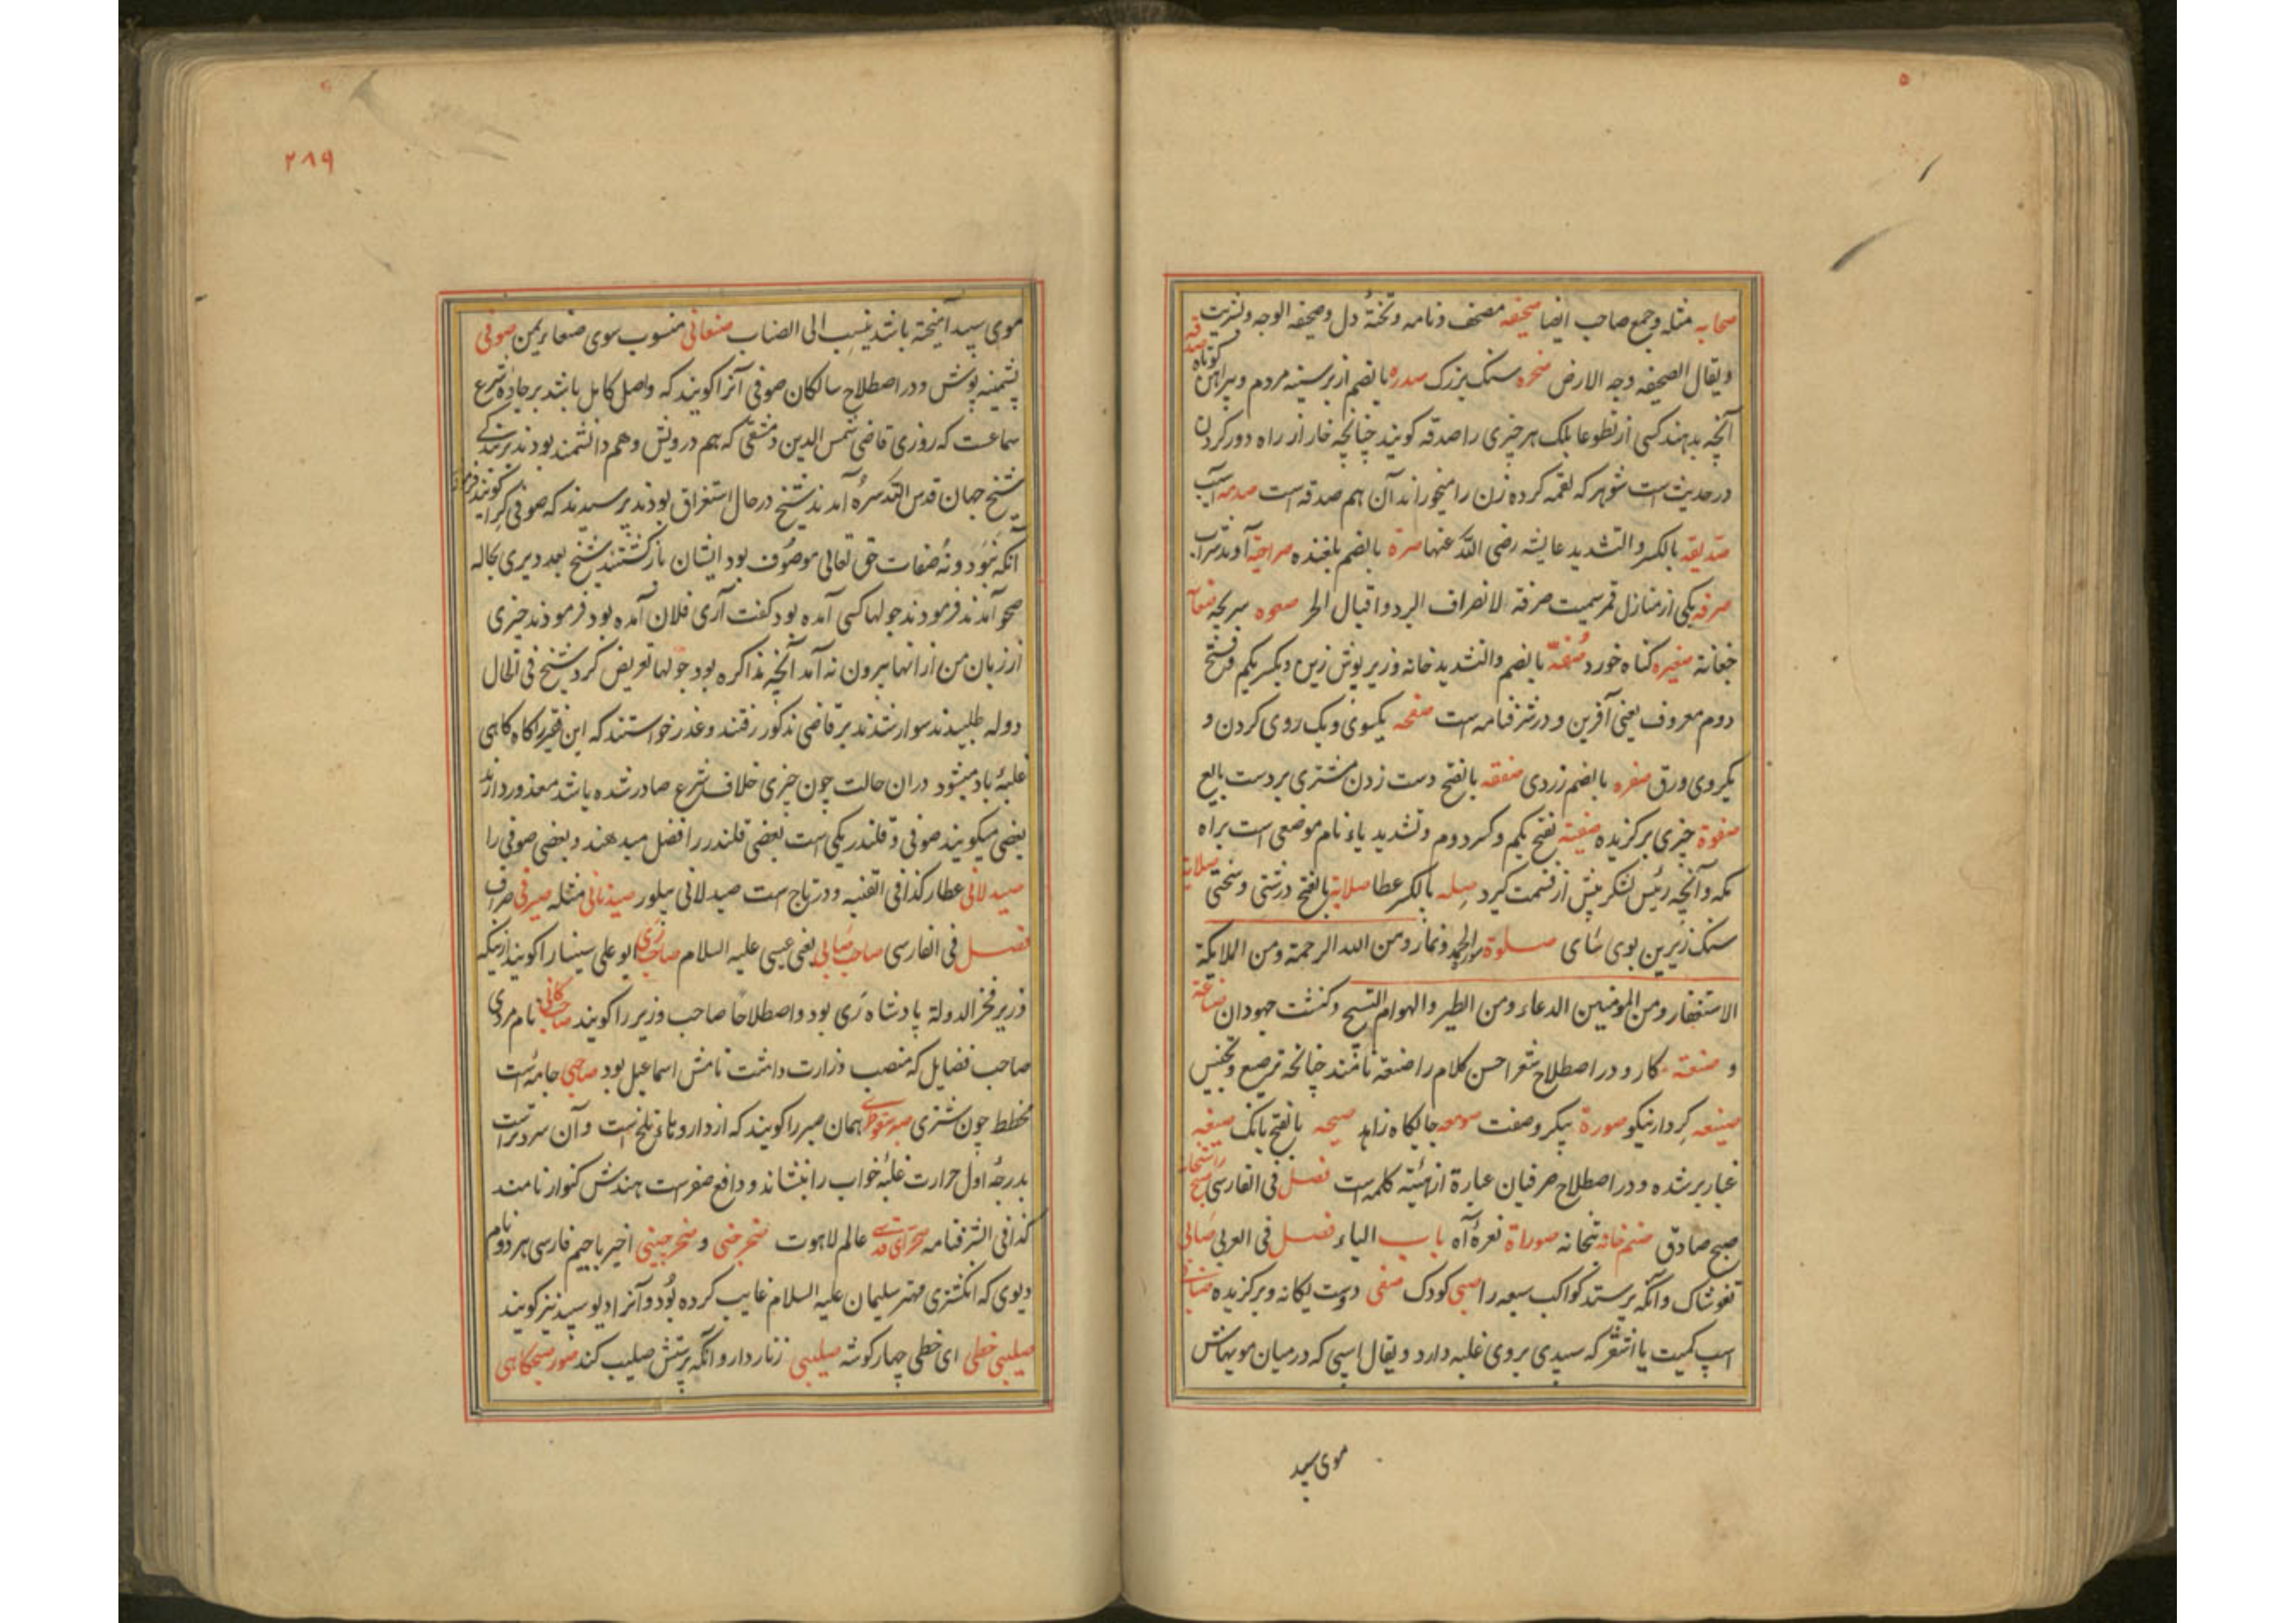 صحابه مثله وجمع صاحب ایضا صحیفه مصحف و نامه و تختهٔ دل و صحیفه الوجه
ویقال الصحیفه وجه الارض صخره سنک بزرک صدره بالضم از بر سینه مردم و پیراهن کوتاه صدقه
آنچه بدهند کسی از تطوعا بلک هر چیزی را صدقه کویند چنانچه خار از راه دور کردن
در حدیث است شوهر که لقمه کرده زن را میخوراند آن هم صدقه است صدمه آسیب
صدیقه بالکسر والتشدید عایشه رضی الله عنها صرة بالضم صراحیه آوند شراب
صرفه یکی از منازل قمر سمیت صرفة لانصراف البرد و اقبال الحر صعوه
چغانه صغیره کناه خورد صفه بالضم والتشدید خانه وزیر پوش زین و بکسر یکم و فتح
دوم معروف یعنی آفرین و در شرفنامه است صفحه یکسوی و یک روی کردن و
یکروی ورق صفره بالضم زردی صفقه بالفتح دست زدن مشتری بر دست بایع
صفوة چیزی برکزیده صفیة بفتح یکم و کسر دوم و تشدید یاء نام موضعی است براه
مکه و آنچه رئیس لشکر پیش از قسمت کیرد صله بالکسر عطا صلابة بالفتح درشتی و سختی صلایة
سنک زیرین بوی سای صلوة ونماز ومن الله الرحمة ومن الملایکة
الاستغفار ومن المومنین الدعاء ومن الطیر والهوام التسبیح و کنشت جهودان صناعة
و صنعة کار و در اصطلاح شعرا حسن کلام را صنعة نامند چنانچه ترصیع و تجنیس
صنیعه کردار نیکو صورة پیکر و صفت صومعه جایکاه زاهد صیحه بالفتح بانک صیغه
غبار بر شده و در اصطلاح صرفیان عبارة از هیئة کلمه است فصل فی الفارسی صبح راستخانه
صبح صادق صنم خانه بتخانه صوراة نعرهٔ آه باب الیاء فصل فی العربی صابی
تغوشاک و آنکه پرستد کواکب سبعه را صبی کودک صفی دوست یکانه و برکزیده صنابی
اسپ کمیت یا اشقر که سپیدی بر وی غلبه دارد و یقال اسپی که در میان مویهاش
موی سپید
۲۸۹
موی سپید آمیخته باشد ینسب الی الصناب صنعانی منسوب سوی صنعا یمن صوفی
پشمینه پوش و در اصطلاح سالکان صوفی آنرا کویند که واصل کامل باشد بر جادهٔ شرع
سماعت که روزی قاضی شمس الدین دمشقی که هم درویش و هم دانشمند بودند
شیخ جهان قدس الله سره آمدند شیخ در حال استغراق بودند پرسیدند که صوفی کرا کویند
آنکه نبود و نه صفات حق تعالی موصوف بود ایشان بازکشتند شیخ بعد دیری بحاله
صحو آمدند فرمودند جولها کسی آمده بود کفت آری فلان آمده بود فرمودند چیزی
از زبان من از انها بیرون نه آمد آنچه مذاکره بود جولها تعریض کرد شیخ فی الحال
دوله طلبیدند سوار شدند بر قاضی مذکور رفتند و عذر خواستند که این فقیر را کاه کاهی
غلبهٔ یاد میشود دران حالت چون چیزی خلاف شرع صادر شده باشد معذور دارند
بعضی میکویند صوفی و قلندر یکی است بعضی قلندر را فضل میدهند و بعضی صوفی را
صیدلانی عطار کذا فی القنیه و در تاج است صیدلانی پیلور صیدنانی مثله صیرفی صراف
فصل فی الفارسی صاحب صابی یعنی عیسی علیه السلام صاحب ری ابو علی سینا را کویند ازینکه
وزیر فخر الدولة پادشاه ری بود و اصطلاحا صاحب وزیر را کویند صاحب کافی نام مردی
صاحب فضایل که منصب وزارت داشت نامش اسماعیل بود صاحبی جامه است
مخطط چون شتری صبر سقوطری همان صبر را کویند که از داروهاء تلخ است و آن سرد تراست
بدرجهٔ اول حرارت غلبهٔ خواب را بنشاند و دافع صفرست هندش کنوار نامند
کذا فی الشرفنامه صحرای قدسی عالم لاهوت صخر جنی و صخر چینی اخیر با جیم فارسی هر دو نام
دیوی که انکشتری مهتر سلیمان علیه السلام غایب کرده بود و آنرا دیو سپید نیز کویند
صلیبی خطی ای خطی چهار کوشه صلیبی زنار دار و آنکه پرستش صلیب کند صور صبحکاهی